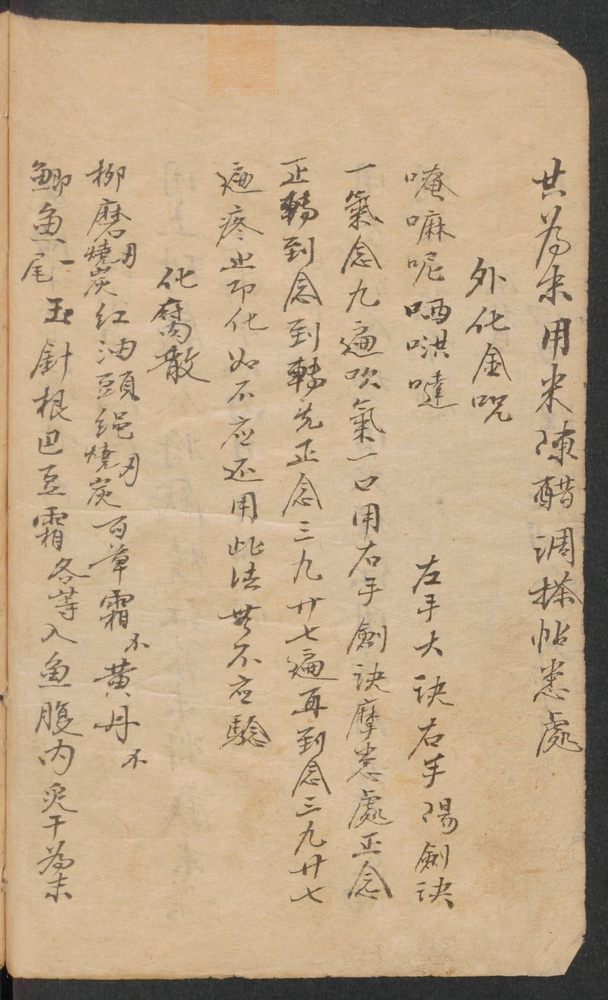 共為末用米陳醋調搽帖患處
外化金咒
唵嘛呢哂哄噠 左手大訣右手陽劍訣
一氣念九遍吹氣一口用右手劍訣摩患處正念
正轉到念到轉先正念三九廿七遍再到念三九廿七
遍疼止即化如不应还用此法無不应驗
化腐散
柳磨燒炭紅油頭绳燒炭百草霜黃丹
鯽魚尾一玉針根巴豆霜各等入魚腹内児干為末